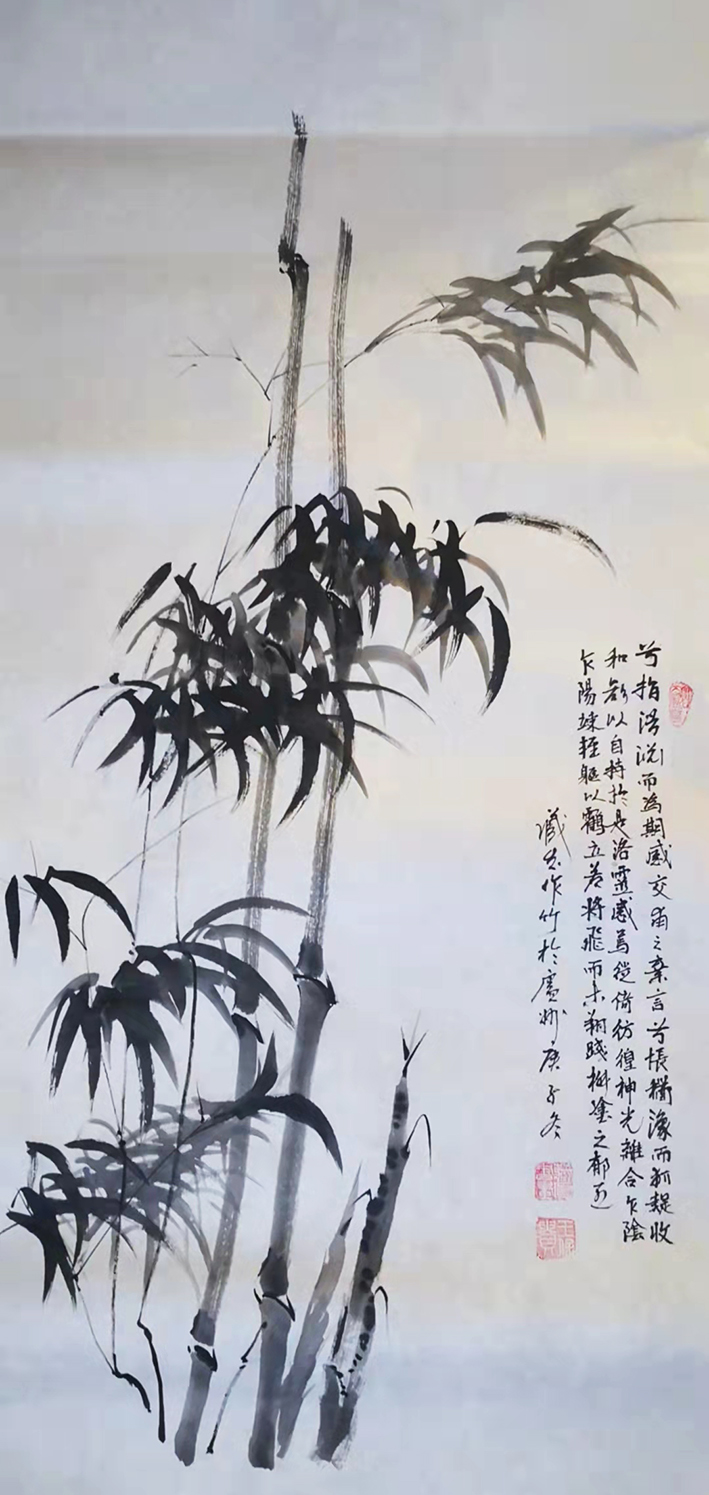 兮指潛淵而為期感交甫之棄言兮悵猶豫而狐疑收
和颜以自持於是洛靈感焉徙倚彷徨神光離合乍陰
乍陽竦輕軀以鶴立若將飛而未翔踐椒塗之郁烈
作竹於廣州庚子冬